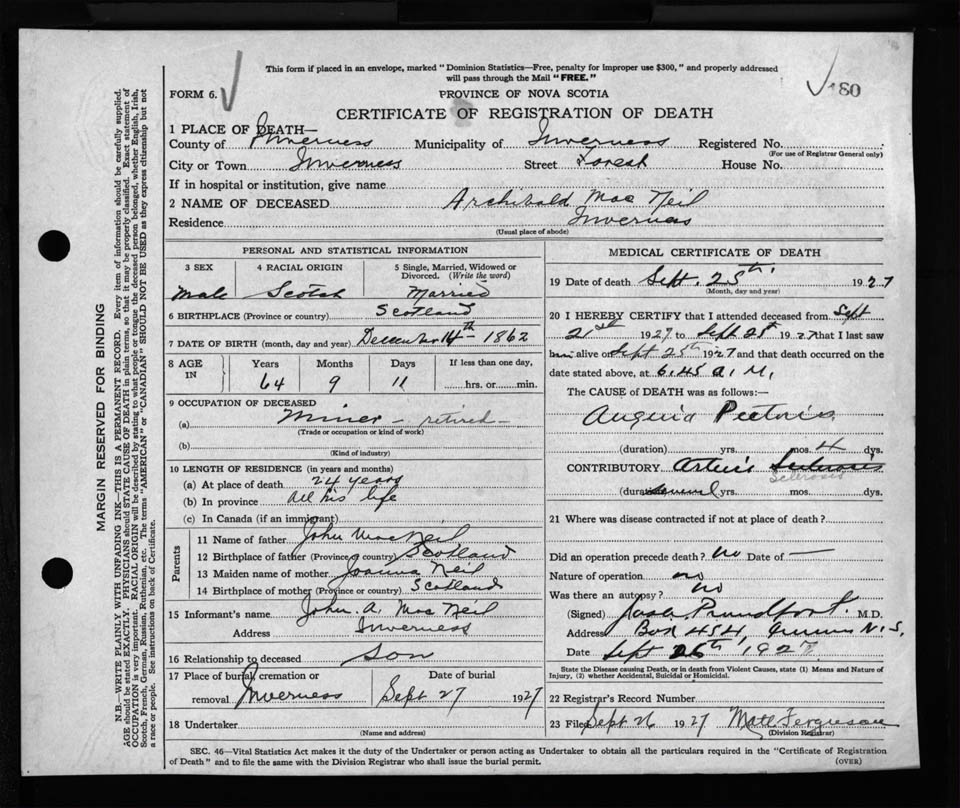 This form if placed in an envelope, marked "Dominion Statistics—Free, penalty for improper use $300," and properly addressed
will pass through the Mail "FREE."
180
FORM 6.
PROVINCE OF NOVA SCOTIA
CERTIFICATE OF REGISTRATION OF DEATH
1 PLACE OF DEATH—
County of Inverness Municipality of Inverness Registered No.
(For use of Registrar General only)
City or Town Inverness Street Forest House No.
If in hospital or institution, give name
2 NAME OF DECEASED Archibald Mac Neil
Residence Inverness
(Usual place of abode)
PERSONAL AND STATISTICAL INFORMATION
3 SEX 4 RACIAL ORIGIN 5 Single, Married, Widowed or Divorced. (Write the word)
Male Scotch Married
6 BIRTHPLACE (Province or country) Scotland
7 DATE OF BIRTH (month, day and year) December 14th 1862
8 AGE IN Years Months Days If less than one day,
64 9 11 hrs. or min.
9 OCCUPATION OF DECEASED
(a) Miner - retired -
(Trade or occupation or kind of work)
(b)
(Kind of industry)
10 LENGTH OF RESIDENCE (in years and months)
(a) At place of death 24 years
(b) In province all his life
(c) In Canada (if an immigrant)
Parents
11 Name of father John MacNeil
12 Birthplace of father (Province or country) Scotland
13 Maiden name of mother Joanna Neil
14 Birthplace of mother (Province or country) Scotland
15 Informant's name John A. Mac Neil
Address Inverness
16 Relationship to deceased son
17 Place of burial, cremation or removal Inverness Date of burial Sept 27 1927
18 Undertaker
(Name and address)
MEDICAL CERTIFICATE OF DEATH
19 Date of death Sept. 25th 1927
(Month, day and year)
20 I HEREBY CERTIFY that I attended deceased from Sept
21st 1927 to Sept 25th 1927 that I last saw
him alive on Sept 25th 1927 and that death occurred on the
date stated above, at 6.45 A. M.
The CAUSE OF DEATH was as follows:—
Anguia Pectoris
(duration) yrs. mos. 4 dys.
CONTRIBUTORY Arterio Sclerosis
Sclerosis
(duration) several yrs. mos. dys.
21 Where was disease contracted if not at place of death?
Did an operation precede death? no Date of —
Nature of operation no
Was there an autopsy? no
(Signed) M.D.
Address Box 454, N.S.
Date Sept 26th 1927
State the Disease causing Death, or in death from Violent Causes, state (1) Means and Nature of
Injury, (2) whether Accidental, Suicidal or Homicidal.
22 Registrar's Record Number
23 Filed Sept 26 1927 Ferguson
(Division Registrar)
SEC. 46—Vital Statistics Act makes it the duty of the Undertaker or person acting as Undertaker to obtain all the particulars required in the "Certificate of Registration
of Death" and to file the same with the Division Registrar who shall issue the burial permit.
(OVER)
MARGIN RESERVED FOR BINDING
N.B.—WRITE PLAINLY WITH UNFADING INK—THIS IS A PERMANENT RECORD. Every item of information should be carefully supplied.
AGE should be stated EXACTLY. PHYSICIANS should STATE CAUSE OF DEATH in plain terms, so that it may be properly classified. Exact statement of
OCCUPATION is very important. RACIAL ORIGIN will be described by stating to what people or tongue the deceased person belonged, whether English, Irish,
Scotch, French, German, Russian, Ruthenian, etc. The terms "AMERICAN" or "CANADIAN" SHOULD NOT BE USED as they express citizenship but not
a race or people. See instructions on back of Certificate.